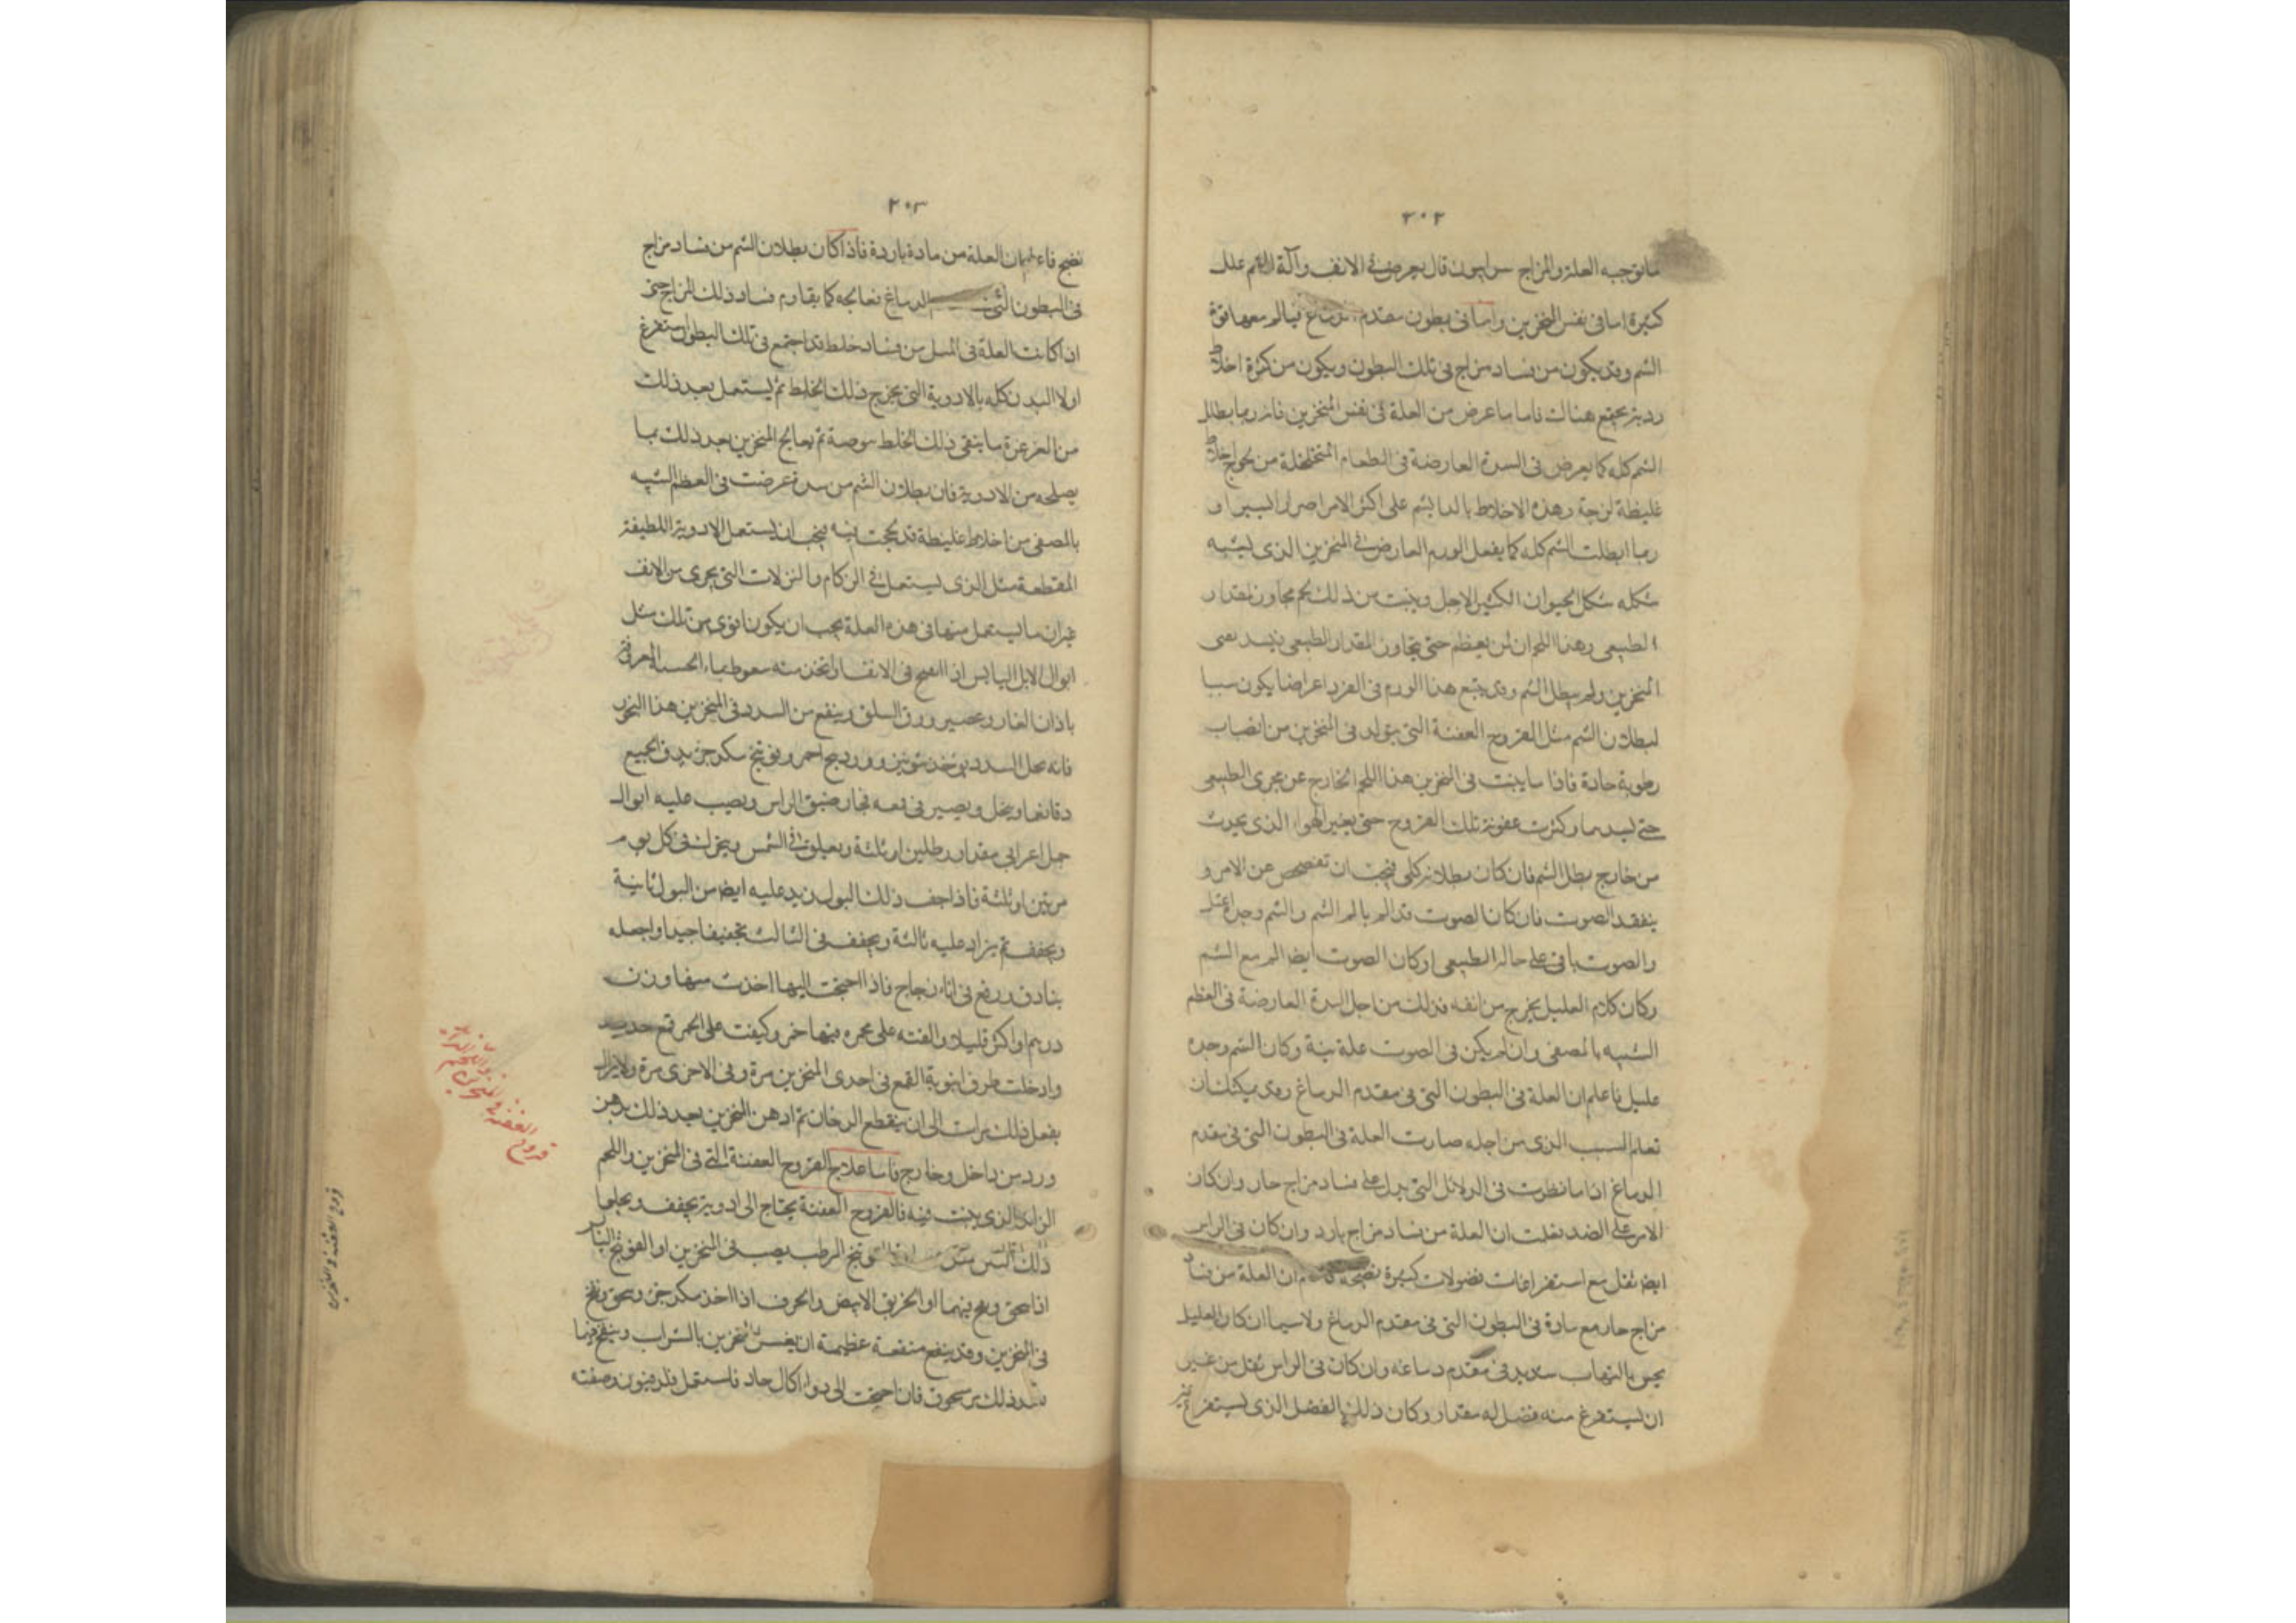 ٢٠٢
ما توجبه العلة والمزاج سرابيون قال يعرض فى الانف وآلة الشم علل
كثيرة اما فى نفس المنخرين واما فى بطون مقدم فيالم معها قوة
الشم وقد يكون من فساد مزاج فى تلك البطون ويكون من كثرة اخلاط
ردية يجتمع هناك فاما ما عرض من العلة فى نفس المنخرين فانه ربما بطل
الشم كله كما يعرض فى السدة العارضة فى العظام المتخلخلة من اخلاط
غليظة لزجة وهذه الاخلاط بالشم على اكثر الامر اضرارا يسيرا و
ربما ابطلت الشم كله كما يفعل الورم العارض فى المنخرين الذى يشبه
شكله شكل الحيوان الكثير الارجل وينبت من ذلك لحم مجاوز لمقدار
الطبيعى وهذا اللحم ان لم يعظم حتى يتجاوز المقدار الطبيعى
المنخرين ولم يبطل الشم وقد يتبع هذا الورم فى الفرد اعراضا يكون سببا
لبطلان الشم مثل القروح العفنة التى يتولد فى المنخرين من انصباب
رطوبة حادة فاذا ما ينبت فى المنخرين هذا اللحم الخارج عن مجرى الطبيعى
حتى يسدهما وكثرت عفونة تلك القروح حتى يغير الهواء الذى يحدث
من خارج بطل الشم فان كان بطلانه كلى فيجب ان تفحص عن الامر و
يتفقد الصوت فان كان الصوت قد الم بالم الشم والشم وحده اعتل
والصوت باقى على حاله الطبيعى او كان الصوت ايضا الم مع الشم
وكان كلام العليل يخرج من انفه فذلك من اجل السدة العارضة فى العظم
الشبيه بالمصفى وان لم يكن فى الصوت علة بتة وكان الشم وحده
عليل فاعلم ان العلة فى البطون التى فى مقدم الدماغ وقد يمكنك ان
تعلم السبب الذى من اجله صارت العلة فى البطون التى فى مقدم
الدماغ اذا ما نظرت فى الدلائل التى يدل على فساد مزاج حار وان كان
الامر على الضد فقلت ان العلة من فساد مزاج بارد وان كان فى الراس
ايضا ثقل مع استفراغات فضولات كثيرة نضيجة ان العلة من فساد
مزاج حار مع مادة فى البطون التى فى مقدم الدماغ ولا سيما ان كان العليل
يحس بالتهاب شديد فى مقدم دماغه وان كان فى الراس ثقل من غير
ان يستفرغ منه فضل له مقدار وكان ذلك الفضل الذى يستفرغ غير
٢٠٣
نضيج فاعلم ان العلة من مادة باردة فاذا كان بطلان الشم من فساد مزاج
فى البطون التى الدماغ فعالجه كما يقاوم فساد ذلك المزاج حتى
اذا كانت العلة فى المثل من فساد خلط قد اجتمع فى تلك البطون استفرغ
اولا البدن كله بالادوية التى يخرج ذلك الخلط ثم يستعمل بعد ذلك
من الغرغرة ما ينقى ذلك الخلط ثم يعالج المنخرين بعد ذلك بما
يصلحه من الادوية فان بطلان الشم من سدة عرضت فى العظم الشبيه
بالمصفى من اخلاط غليظة قد لحجت فيه فيجب ان يستعمل الادوية اللطيفة
المقطعة مثل الذى يستعمل فى الزكام والنزلات التى يجرى من الانف
غير ان ما يستعمل منها فى هذه العلة يجب ان يكون اقوى من تلك مثل
ابوال الابل اليابس اذا انفخ فى الانف او اتخذ منه سعوط بماء الحسـ
باذان الفار وعصير ورق السلق وينفع من السدد فى المنخرين هذا البخور
فانه يحل السدد يؤخذ شونيز وزرنيخ احمر وفوتنج يدق الجميع
دقا ناعما وينخل ويصير فى فخار ضيق الراس ويصب عليه ابوال
جمل اعرابى مقدار رطلين او ثلثة ويعلق فى الشمس ويحرك فى كل يوم
مرتين او ثلثة فاذا جف ذلك البول زيد عليه ايضا من البول ثانية
ويجفف ثم يزاد عليه ثالثة ويجفف فى الثالث تجفيفا جيدا واجعله
بنادق ورفع فى اناء زجاج فاذا احتجت اليها اخذت منها وزن
درهم او اكثر قليلا والقته على مجمره فيها جمر وكبيت على الجمر قمع حديد
وادخلت طرف انبوبة القمع فى احدى المنخرين مرة وفى الاخرى مرة ولا يزال
يفعل ذلك مرات الى ان ينقطع الدخان ثم ادهن المنخرين بعد ذلك بدهن
ورد من داخل وخارج فاما علاج القروح العفنة التى فى المنخرين واللحم
الزائد الذى ينبت فيه فالقروح العفنة يحتاج الى ادوية يجفف ويجلها
ذلك الرطب يصب فى المنخرين او الفوتنج اليابس
اذا سحق ونفخ فيهما او الخربق الابيض والحرف اذا اخذ وسحق ونفخ
فى المنخرين وقد ينفع منفعة عظيمة ان يغسل المنخرين بالشراب وينفخ فيها
بعد ذلك مر مسحوق فان احتجت الى دواء اكال حاد فاستعمل قلدفيون وصفته
قروح العفنة